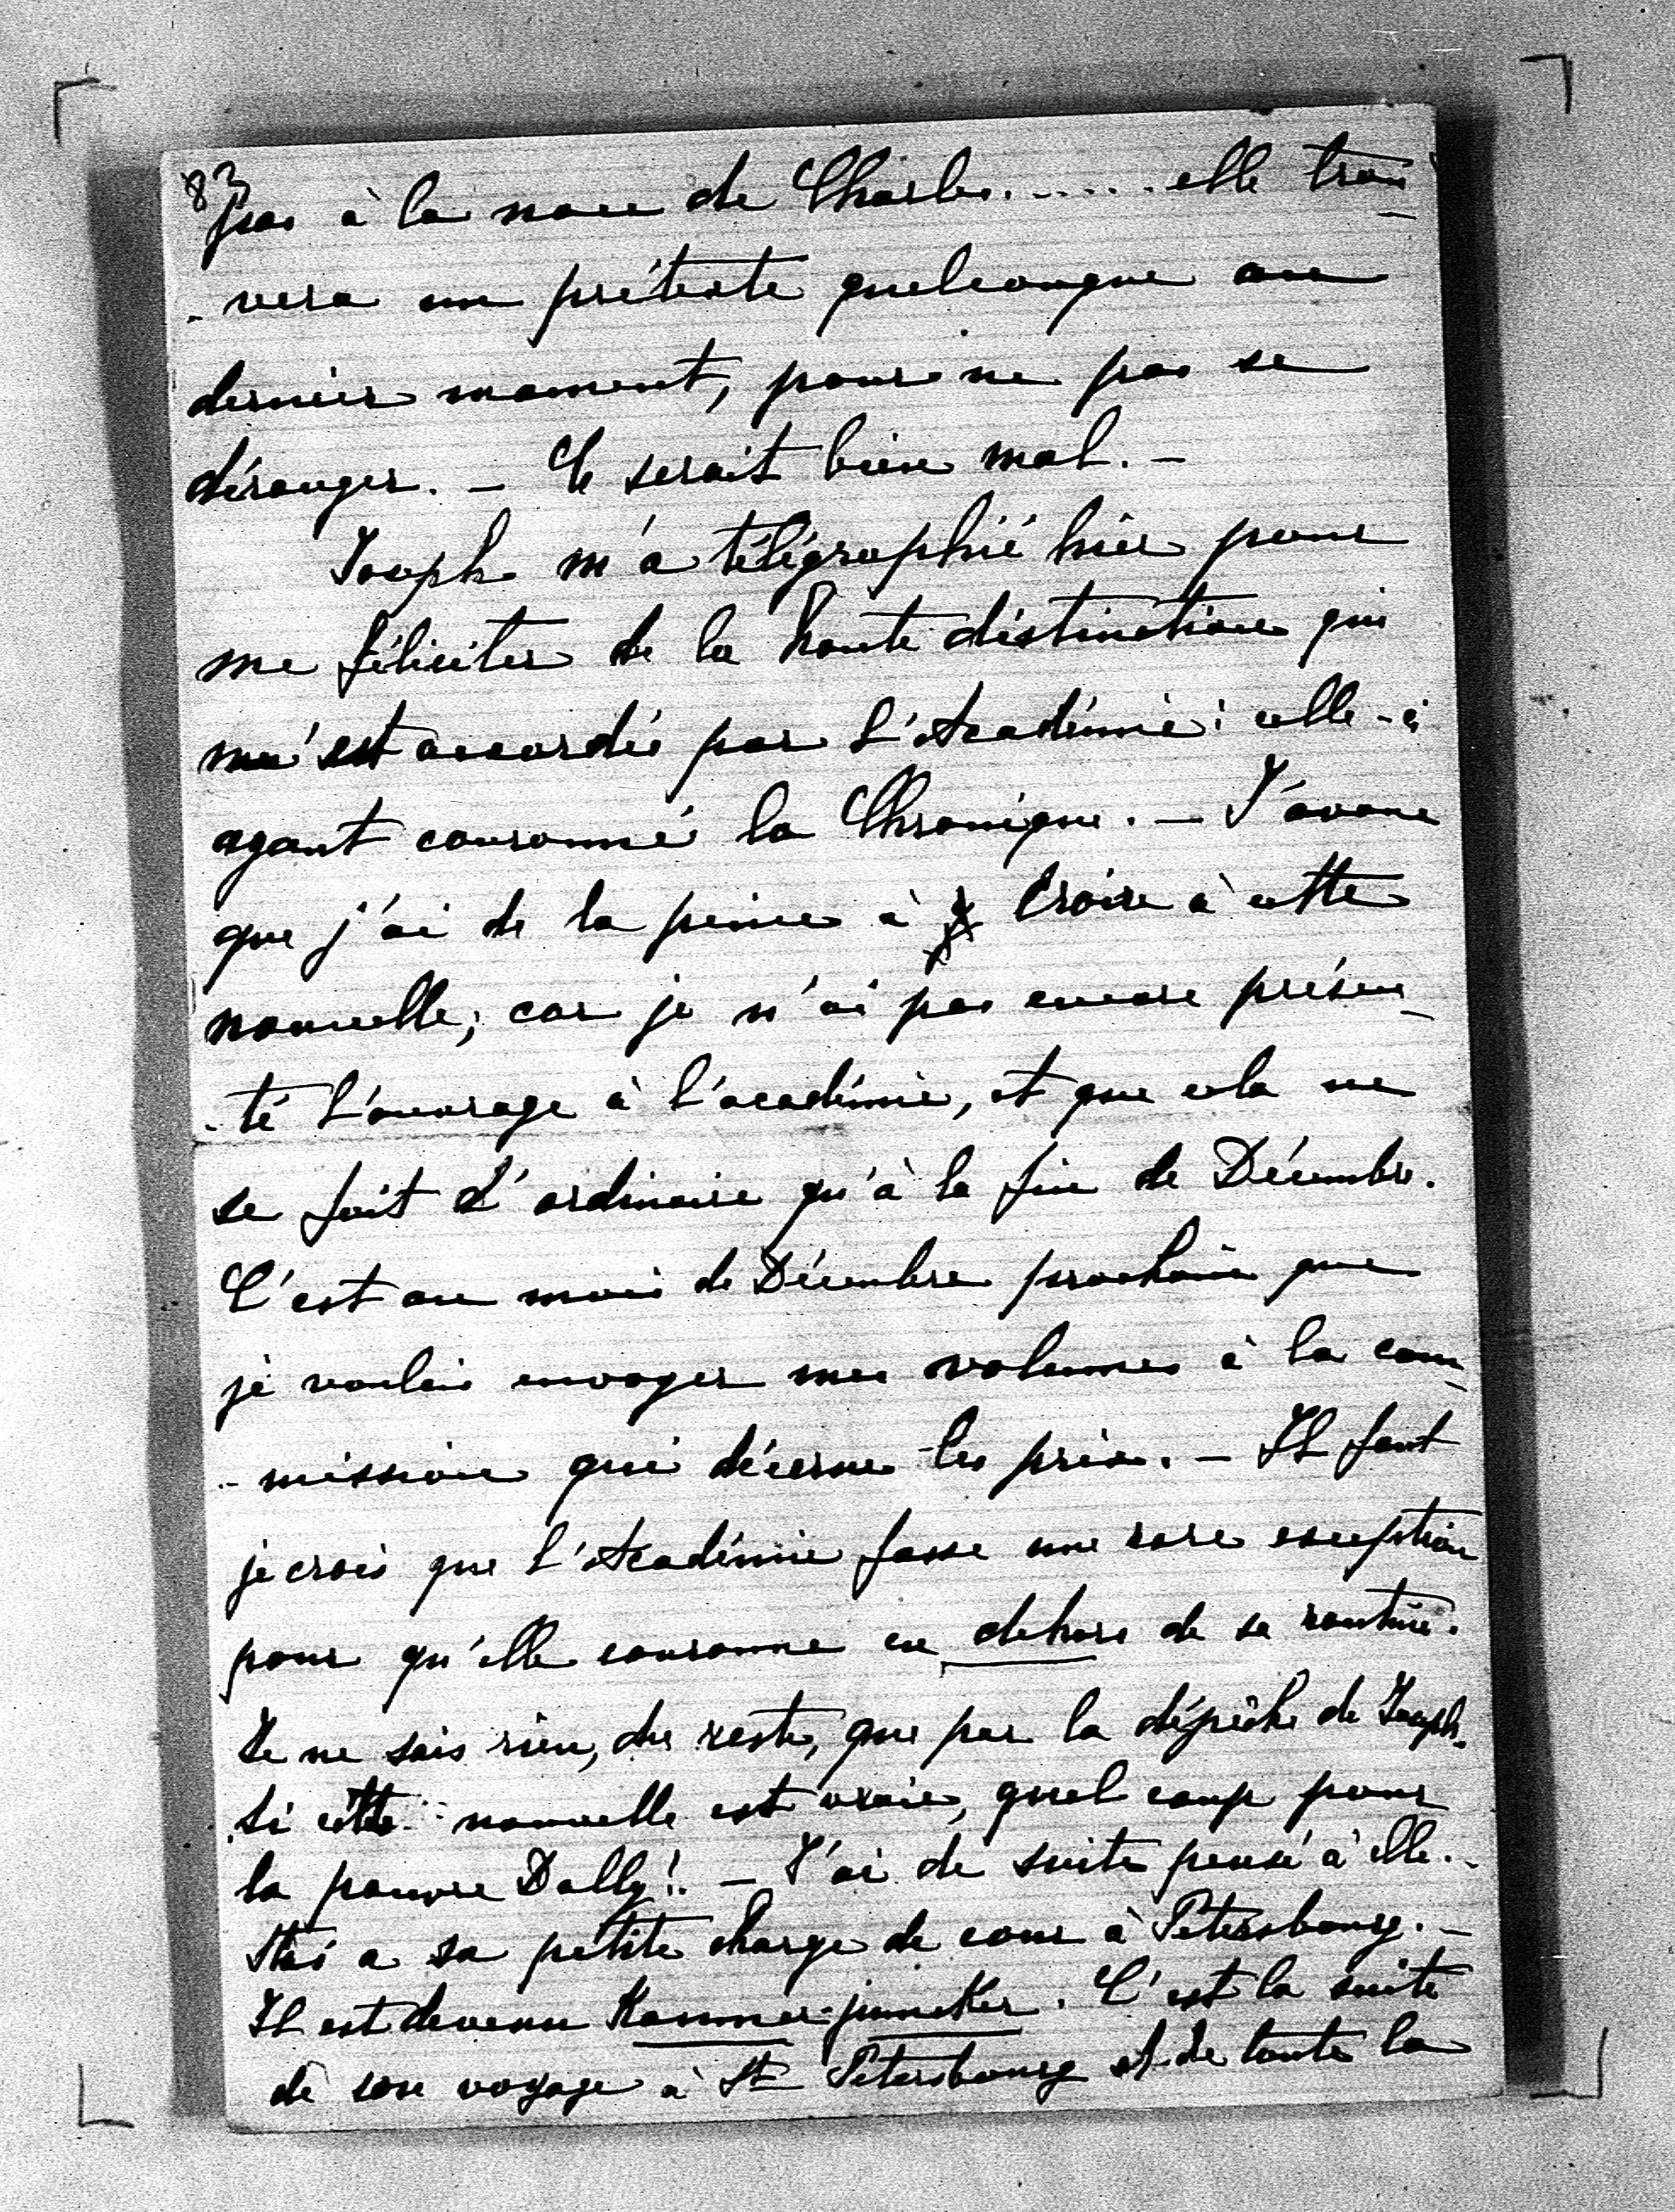 83
pas à la noce de Charles. ..... elle trou-
-vera un prétexte quelconque au
dernier moment, pour ne pas se
déranger. - Ce serait bien mal. -
Joseph m'a télégraphié hier pour
me féliciter de la haute distinction qui
m'est accordée par l'Académie: celle-ci
ayant couronné la Chronique. - J'avoue
que j'ai de la peine à croire à cette
nouvelle, car je n'ai pas encore présen-
-té l'ouvrage à l'académie, et que cela ne
se fait d'ordinaire qu'à la fin de Décembre.
C'est au mois de Décembre prochain que
je voulais envoyer mes volumes à la com-
-mission qui décerne les prix. - Il faut
je crois que l'Académie fasse une rare exception
pour qu'elle couronne en dehors de sa routine.
Je ne sais rien, du reste, que par la dépêche de Joseph.
Si cette nouvelle est vraie, quel coup pour
la pauvre Dolly! - J'ai de suite pensé à elle. -
a sa petite charge de cour à Petersbourg. -
Il est devenu Kammer-junker. C'est la suite
de son voyage à St Petersbourg et de toute la